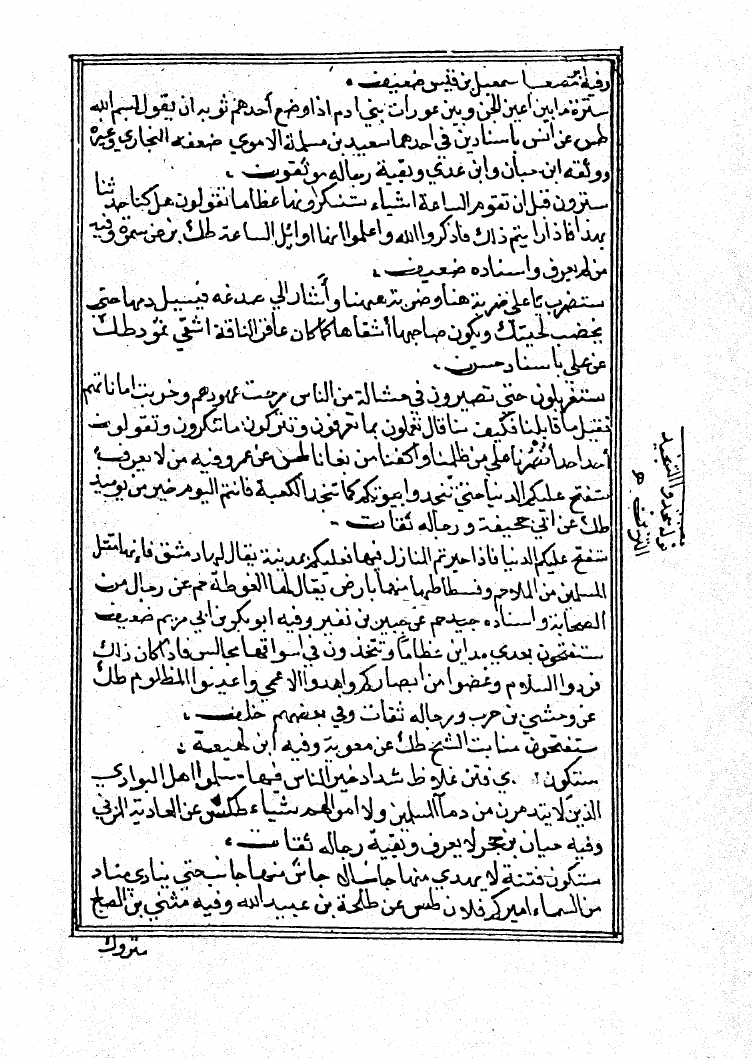 وفيه مصعب اسمعيل بن قيس ضعيف .
سترة ما بين اعين الجن وبين عورات بني ادم اذا وضع أحدهم ثوبه ان يقول بسم الله
طس عن انس باسنادين في احدهما سعيد بن مسلمة الاموي ضعفه البخاري وغيره
ووثقه ابن حبان وابن عدي وبقية رجاله موثقوت .
سترون قبل ان تقوم الساعة اشياء ستنكرونها عظاما تقولون هل كنا حدثنا
بهذا فاذا رايتم ذلك فاذكروا الله واعلموا انها اوائل الساعة طك بز عن سمرة وفيه
من لم يعرف واسناده ضعيف .
ستضرب يا علي ضربة هنا وضربة ههنا وأشار الى صدغه فيسيل دمها حتى
يخضب لحيتك ويكون صاحبها أشقاها كما كان عاقر الناقة اشقى ثمود طك
عن علي باسناد حسن .
ستغربلون حتى تصيرون في حثالة من الناس مرجت عهودهم وخربت اماناتهم
فقيل ما قايلنا فكيف بنا قال تعملون بما تعرفون وتتركون ما تنكرون وتقولوت
أحد احد انصرنا على من ظلمنا واكفنا من بغانا طس عن عمر وفيه من لا يعرف
ستفتح عليكم الدنيا حتى تنجدوا بيوتكم كما تنجد الكعبة فانتم اليوم خير من يوميذ
طك عن ابي جحيفة ورجاله ثقات .
ستفتح عليكم الدنيا فاذا خيرتم المنازل فيها فعليكم بمدينة يقال لها دمشق فانها معقل
المسلمين من الملاحم وفسطاطها منها بارض يقال لها الغوطة حم عن رجال من
الصحابة واسناده جيد حم عن جبير بن نفير وفيه ابو بكر بن ابي مريم ضعيف
ستفتحون بعدي مداين عظاما وتتخذون في اسواقها مجالس فاذا كان ذلك
فردوا السلام وغضوا من ابصاركم واهدوا الاعمى واعينوا المظلوم طك
عن وحشي بن حرب ورجاله ثقات وفي بعضهم خلف .
ستفتحون منابت الشيح طك عن معوية وفيه ابن لهيعة .
ستكون ي فتن غلاظ شداد خير الناس فيها مسلموا اهل البوادي
الذين لا يتدهون من دماء المسلمين ولا اموالهم شياء طكس عن العادية المزني
وفيه حيان بن حجر لا يعرف وبقية رجاله ثقات .
ستكون فتنة لا يهدي منها جانب الا جاش منها جانب حتى ينادي مناد
من السماء اميركم فلان طس عن طلحة بن عبيد الله وفيه مثنى بن الصباح
متروك
قوله تنجدوا التنجيد
التزيين هـ